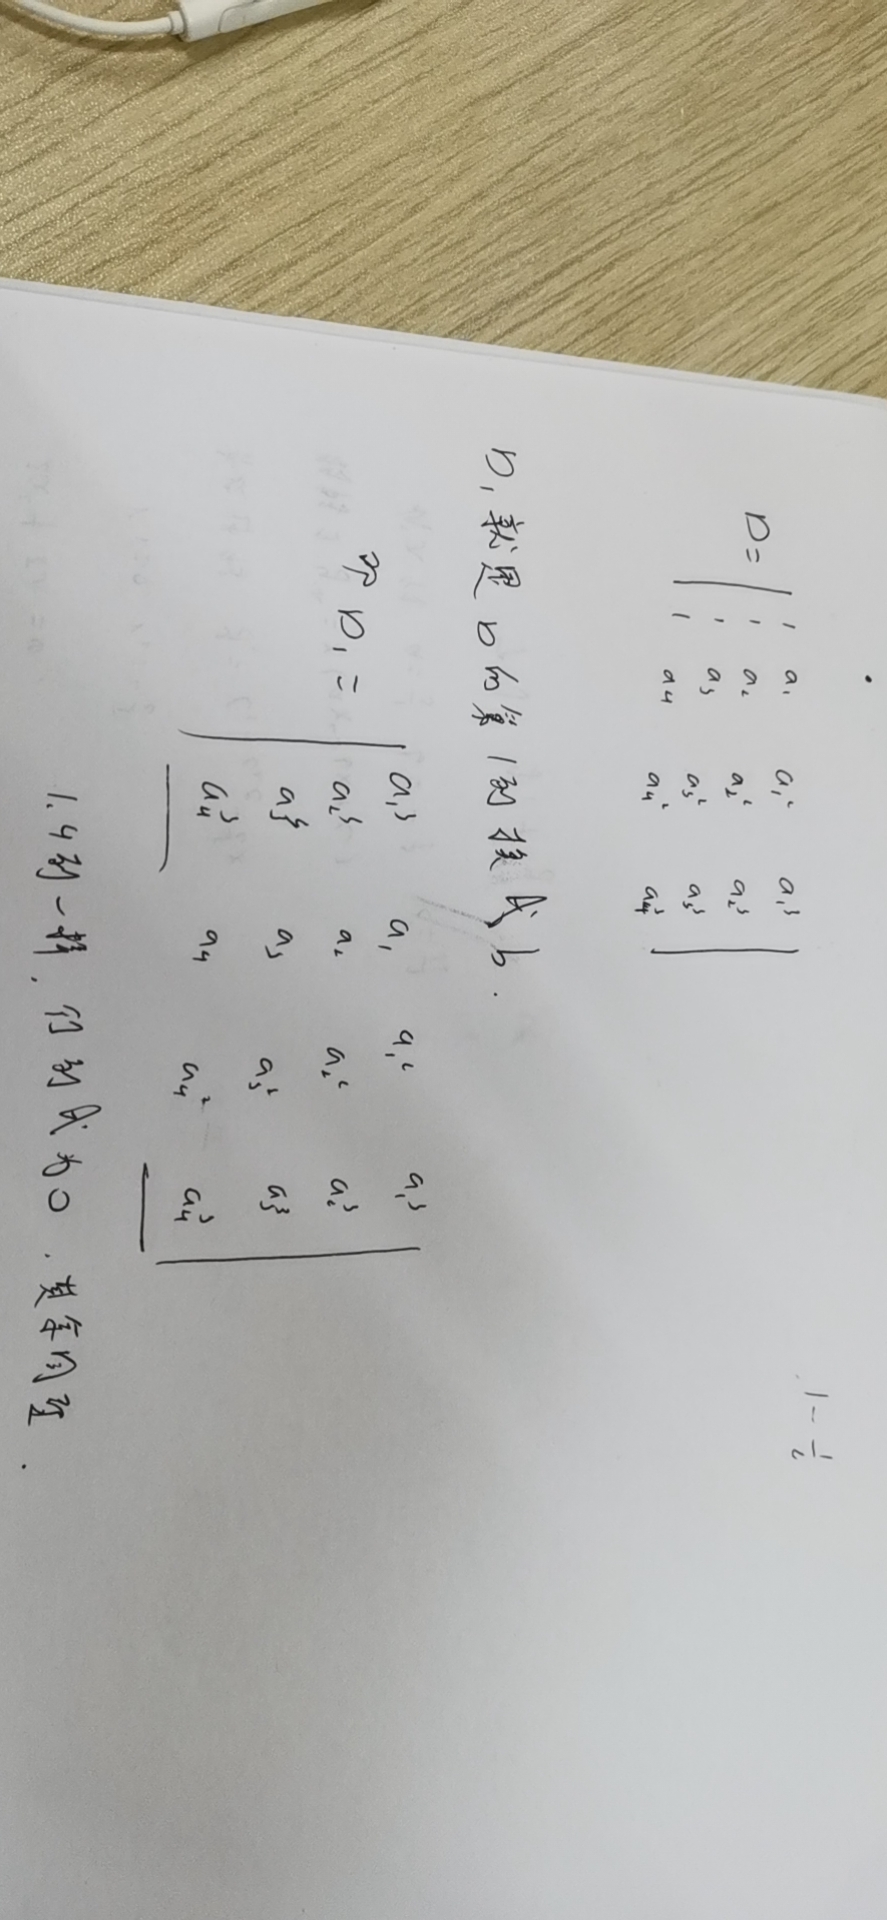 1 - 1/2
D = | 1 a₁ a₁² a₁³ |
1 a₂ a₂² a₂³
1 a₃ a₃² a₃³
1 a₄ a₄² a₄³
D₁ 就是 D 的第1列换成 b.
即 D₁ = | a₁³ a₁ a₁² a₁³ |
a₂³ a₂ a₂² a₂³
a₃³ a₃ a₃² a₃³
a₄³ a₄ a₄² a₄³
1.4列一样, 行列式为0. 其余同理.